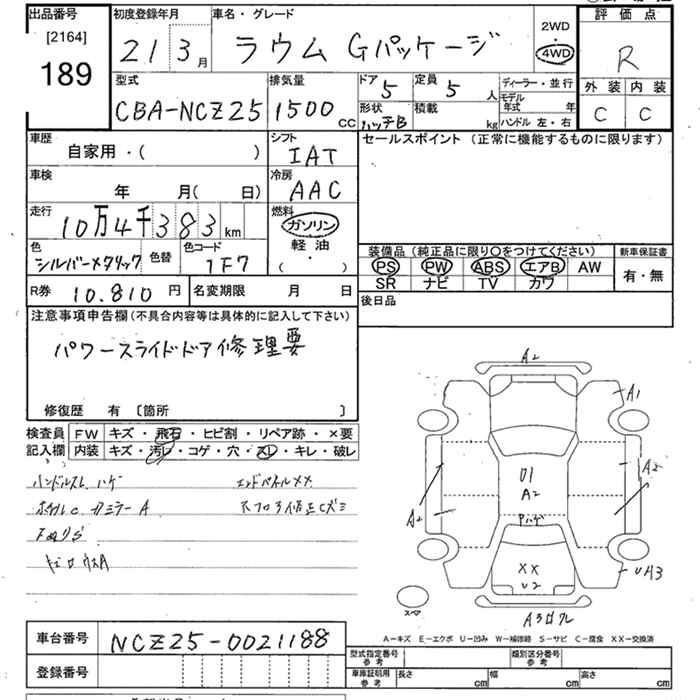 出品番号 初度登録年月 車名・グレード 2WD 評価点
[2164] 189
21 3月 ラウム Gパッケージ 4WD R
型式 排気量 ドア 定員 ディーラー・並行 外装 内装
CBA-NCZ25 1500 CC 5 5 人 モデル年式 年 C C
形状 ハッチB 積載 kg ハンドル 左・右
車歴 シフト セールスポイント (正常に機能するものに限ります)
自家用・( ) IAT
車検 冷房
年 月( 日) AAC
走行 燃料
10万4千383 km ガソリン
軽油
( ・ )
色 色替 色コード 装備品 (純正品に限り○をつけてください) 新車保証書
シルバーメタリック 1F7 PS PW ABS エアB AW 有・無
SR ナビ TV カワ
R券 10.810 円 名変期限 月 日 後日品
注意事項申告欄 (不具合内容等は具体的に記入して下さい)
パワースライドドア修理要
修復歴 有 〔箇所 〕
検査員 FW キズ・飛石・ヒビ割・リペア跡・×要
記入欄 内装 キズ・汚レ・コゲ・穴・スレ・キレ・破レ
ハンドルスレ ハゲ エンドパネルXX
A
A2
A1
U1
A2
A2
A2
XX
U2
UA3
スペア
A―キズ E―エクボ U―凹み W―補修跡 S―サビ C―腐食 XX―交換済
車台番号 NCZ25-0021188
型式指定番号 参考 類別区分番号 参考
登録番号
車庫証明用 参考 長さ cm 幅 cm 高さ cm